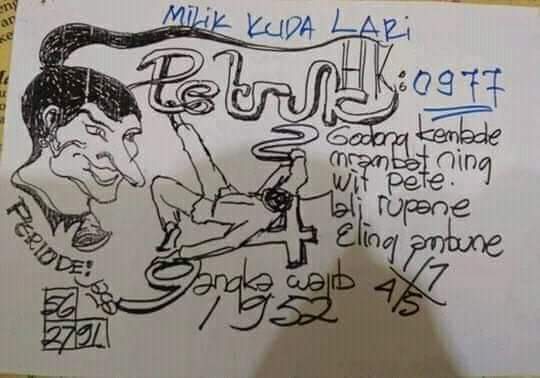 MILIK KUDA LARI
Petruk HK:
0977
2
Godong kembade
mrambat ning
wit pete.
lali rupane
Eling ambune
4
PERIODE:
angka wajib
1952
1/7
4/5
56
27 91